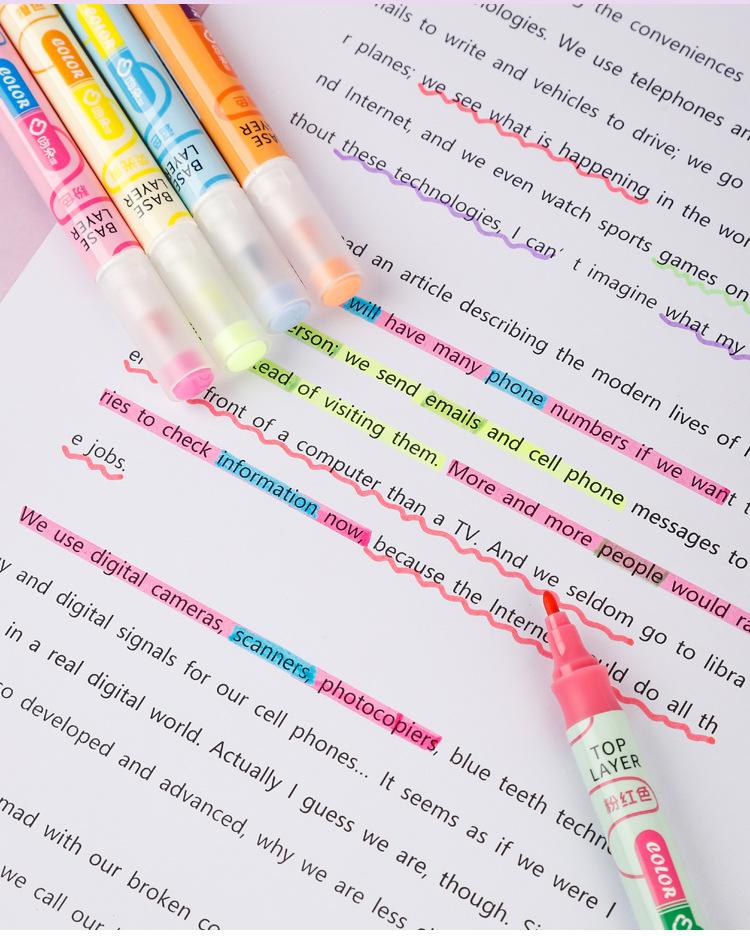 the conveniences
nologies. We use telephones an
nails to write and vehicles to drive; we go
r planes; we see what is happening in the wor
nd Internet, and we even watch sports games on
thout these technologies, I can' t imagine what my
ad an article describing the modern lives of
will have many phone numbers if we want
erson; we send emails and cell phone messages to
tead of visiting them. More and more people would ra
front of a computer than a TV. And we seldom go to libra
ries to check information now, because the Interne uld do all th
e jobs.
We use digital cameras, scanners, photocopiers, blue teeth techn
y and digital signals for our cell phones... It seems as if we were l
in a real digital world. Actually I guess we are, though. Si
so developed and advanced, why we are less
mad with our broken co
we call our
COLOR
粉色
BASE
LAYER
COLOR
BASE
LAYER
COLOR
BASE
LAYER
BASE
LAYER
TOP
LAYER
粉红色
COLOR